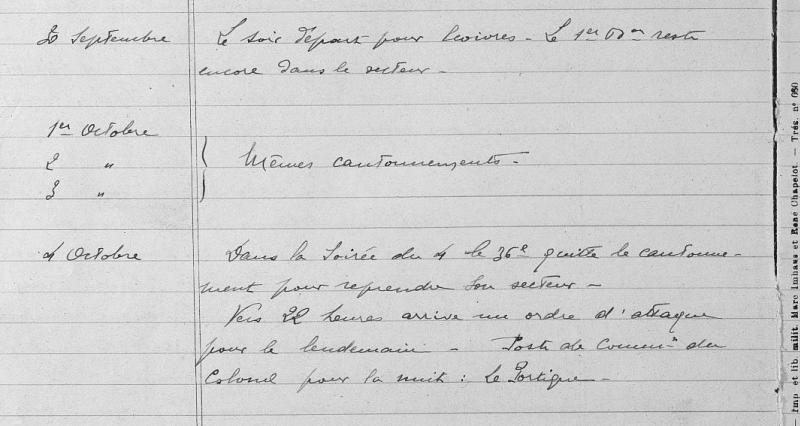 30 Septembre Le soir départ pour Ecoivres - Le 1er Bon reste
encore dans le secteur -
1er Octobre
2 "
3 "
Mêmes cantonnements -
4 Octobre Dans la Soirée du 4 le 36e quitte le cantonne-
ment pour reprendre son secteur -
Vers 22 heures arrive un ordre d'attaque
pour le lendemain - Poste de Comm.t du
Colonel pour la nuit : Le Portique -
- Imp. et lib. milit. Marc Imhaus et René Chapelot. - Trés. n° 050